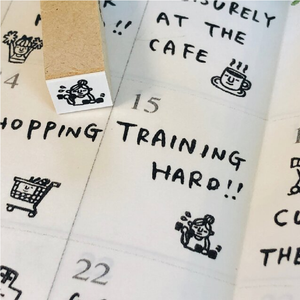 !!
SURELY
AT THE
CAFE
14
HOPPING
15
TRAINING
HARD!!
22
CU
THE